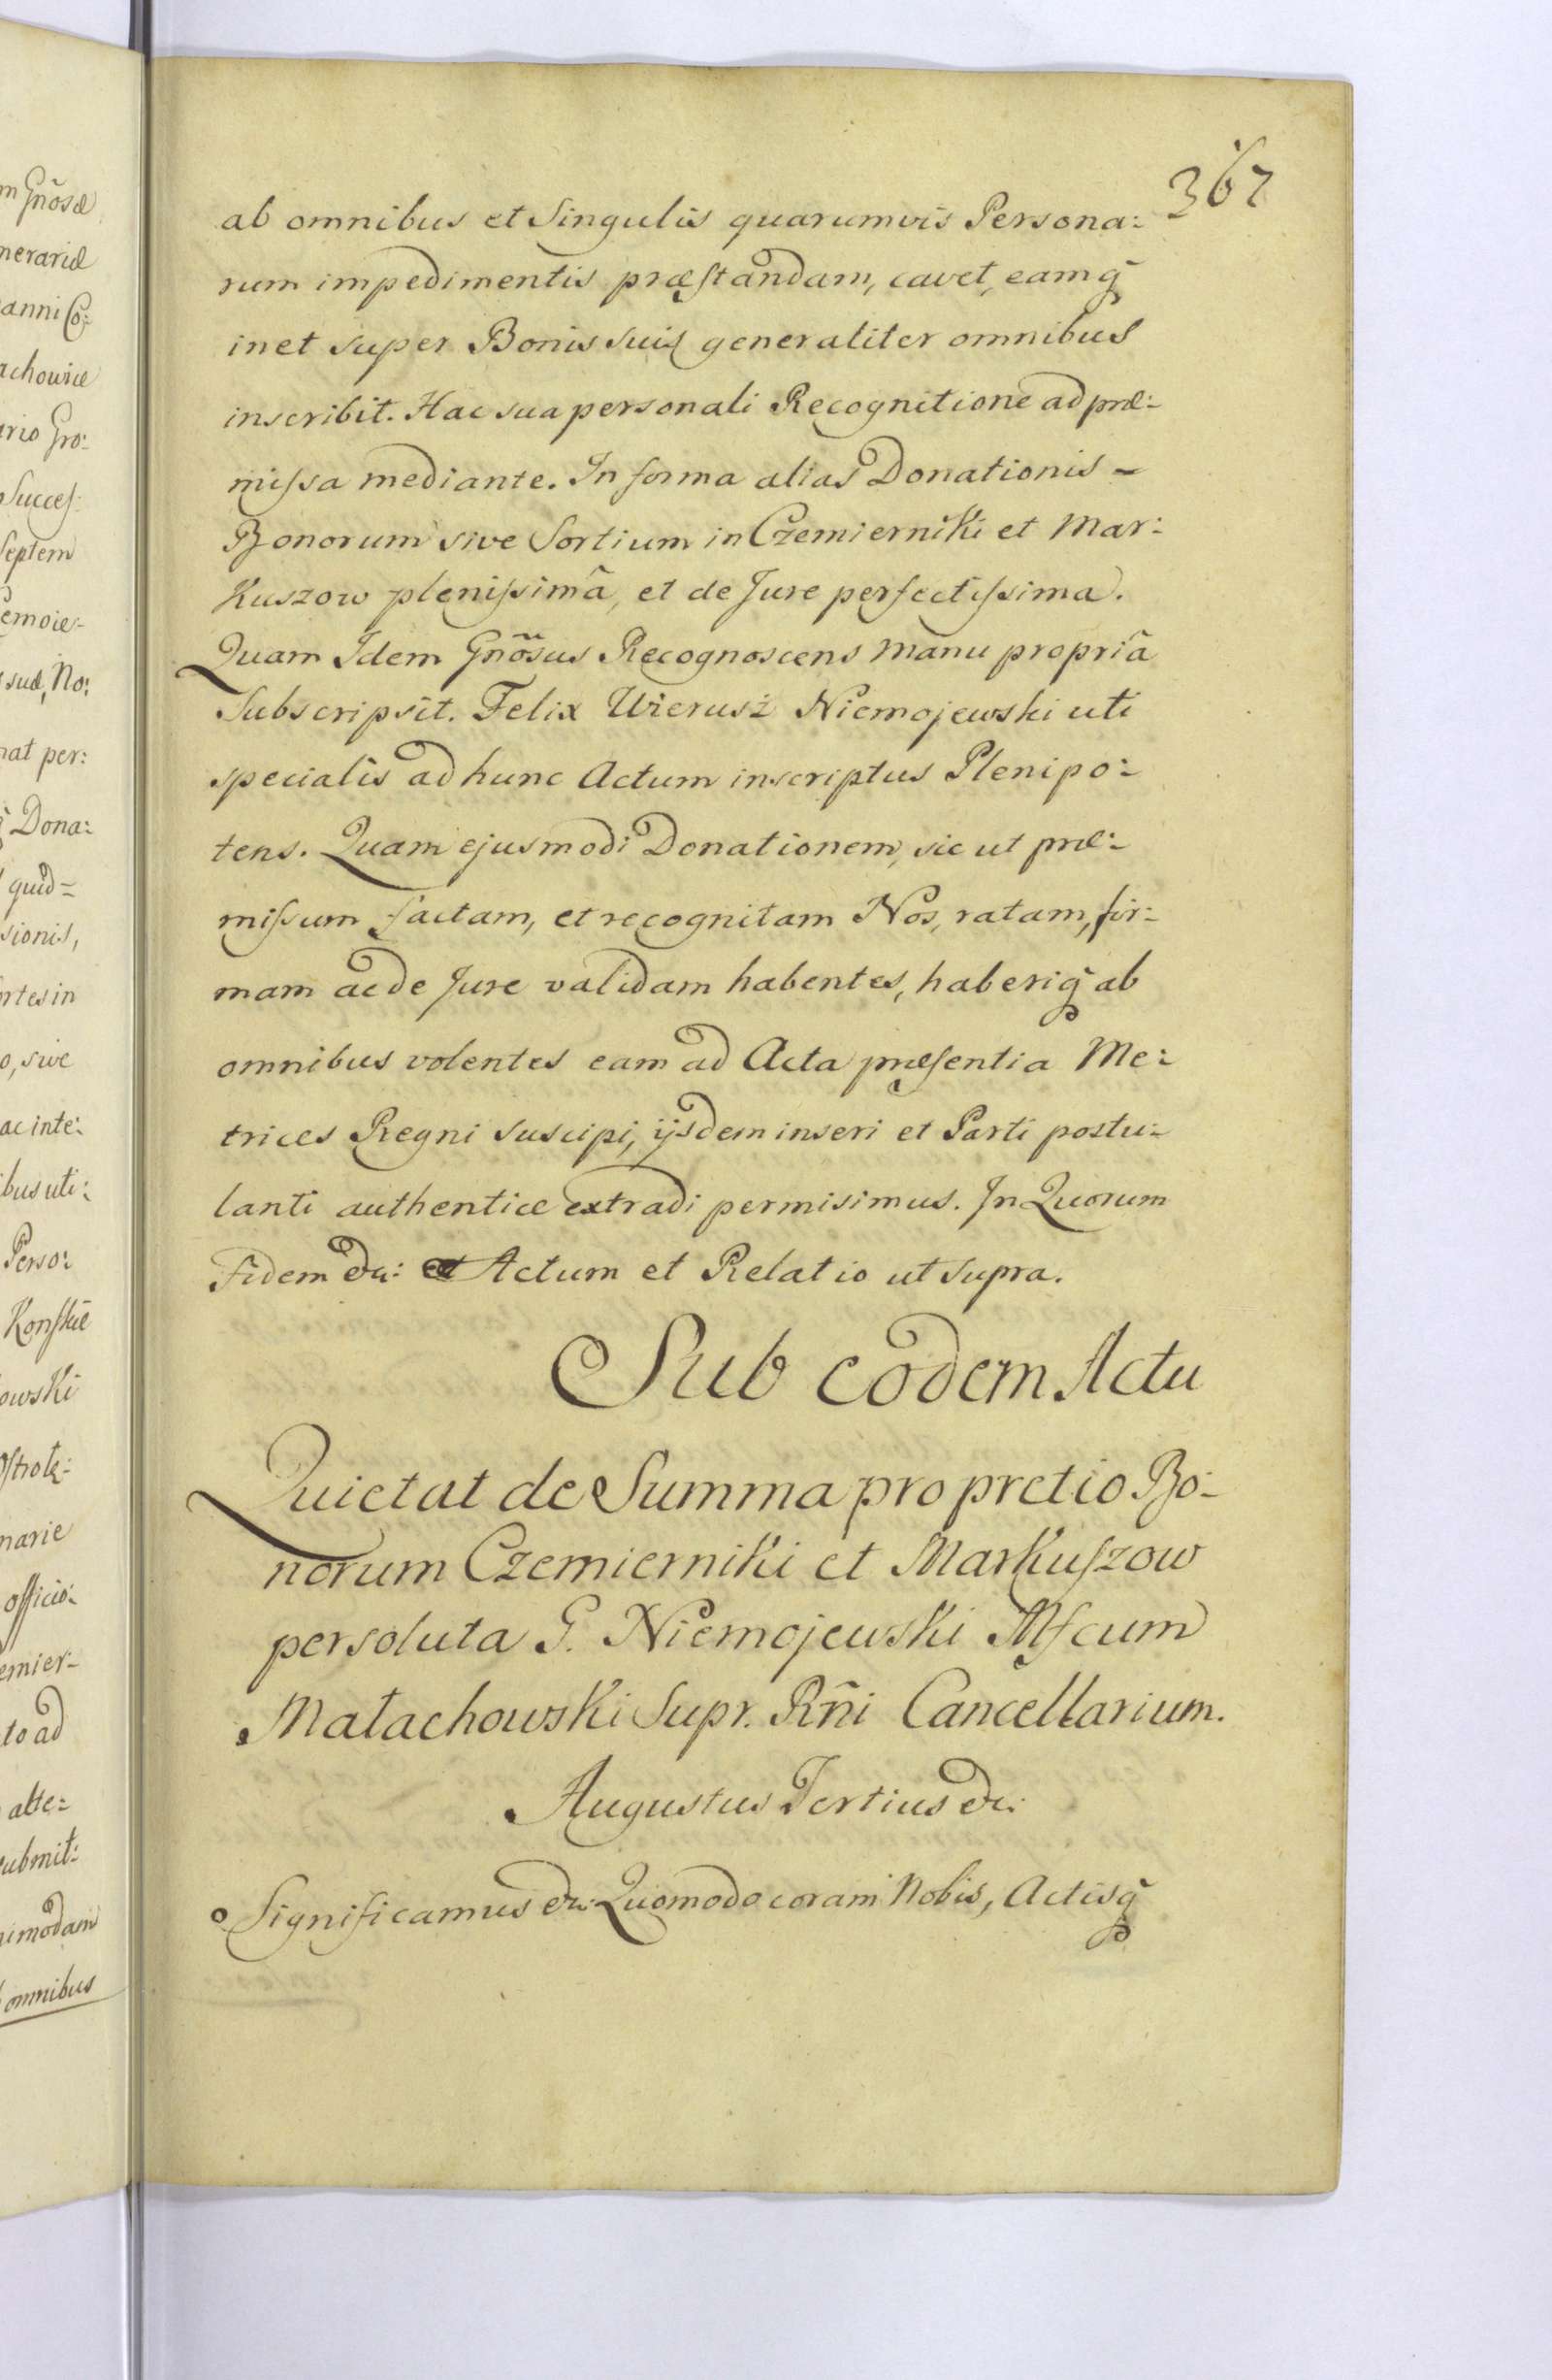 367
ab omnibus et Singulis quarumvis Persona:
rum impedimentis præstandam, cavet, eamq̃
inet super Bonis suis generaliter omnibus
inscribit. Hac sua personali Recognitione ad præ:
missa mediante. In forma alias Donationis -
Bonorum sive Sortium in Czemierniki et Mar:
Kuszow plenissimâ, et de Jure perfectissima.
Quam Idem Gnõsus Recognoscens Manu propriâ
Subscripsit. Felix Wierusz Niemojewski uti
specialis ad hunc Actum inscriptus Plenipo:
tens. Quam ejusmodi Donationem, sic ut præ:
missum factam, et recognitam Nos, ratam, fir:
mam ac de Jure validam habentes, haberiq̃ ab
omnibus volentes eam ad Acta præsentia Me:
trices Regni suscipi, ijsdem inseri et Parti postu:
lanti authentice extradi permisimus. In Quorum
Fidem &c: et Actum et Relatio ut supra.
Sub eodem Actu
Quietat de Summa pro pretio Bo:
norum Czemierniki et Markuszow
persoluta G. Niemojewski Mfcum
Małachowski Supr. Rñi Cancellarium.
Augustus Tertius &c:
Significamus &c: Quomodo coram Nobis, Actisq̃
m Gnõsæ
nerariæ
anni Co:
achowiæ
ario Gro:
Succes:
Septem
emoie-
suæ, No:
nat per:
q̃ Dona:
quid=
sionis,
ortes in
o, sive
ac inte:
ibus uti:
Perso:
Konskie
owski
ostrołę:
narie
officio:
emier-
to ad
alte:
submit:
nimodam
omnibus